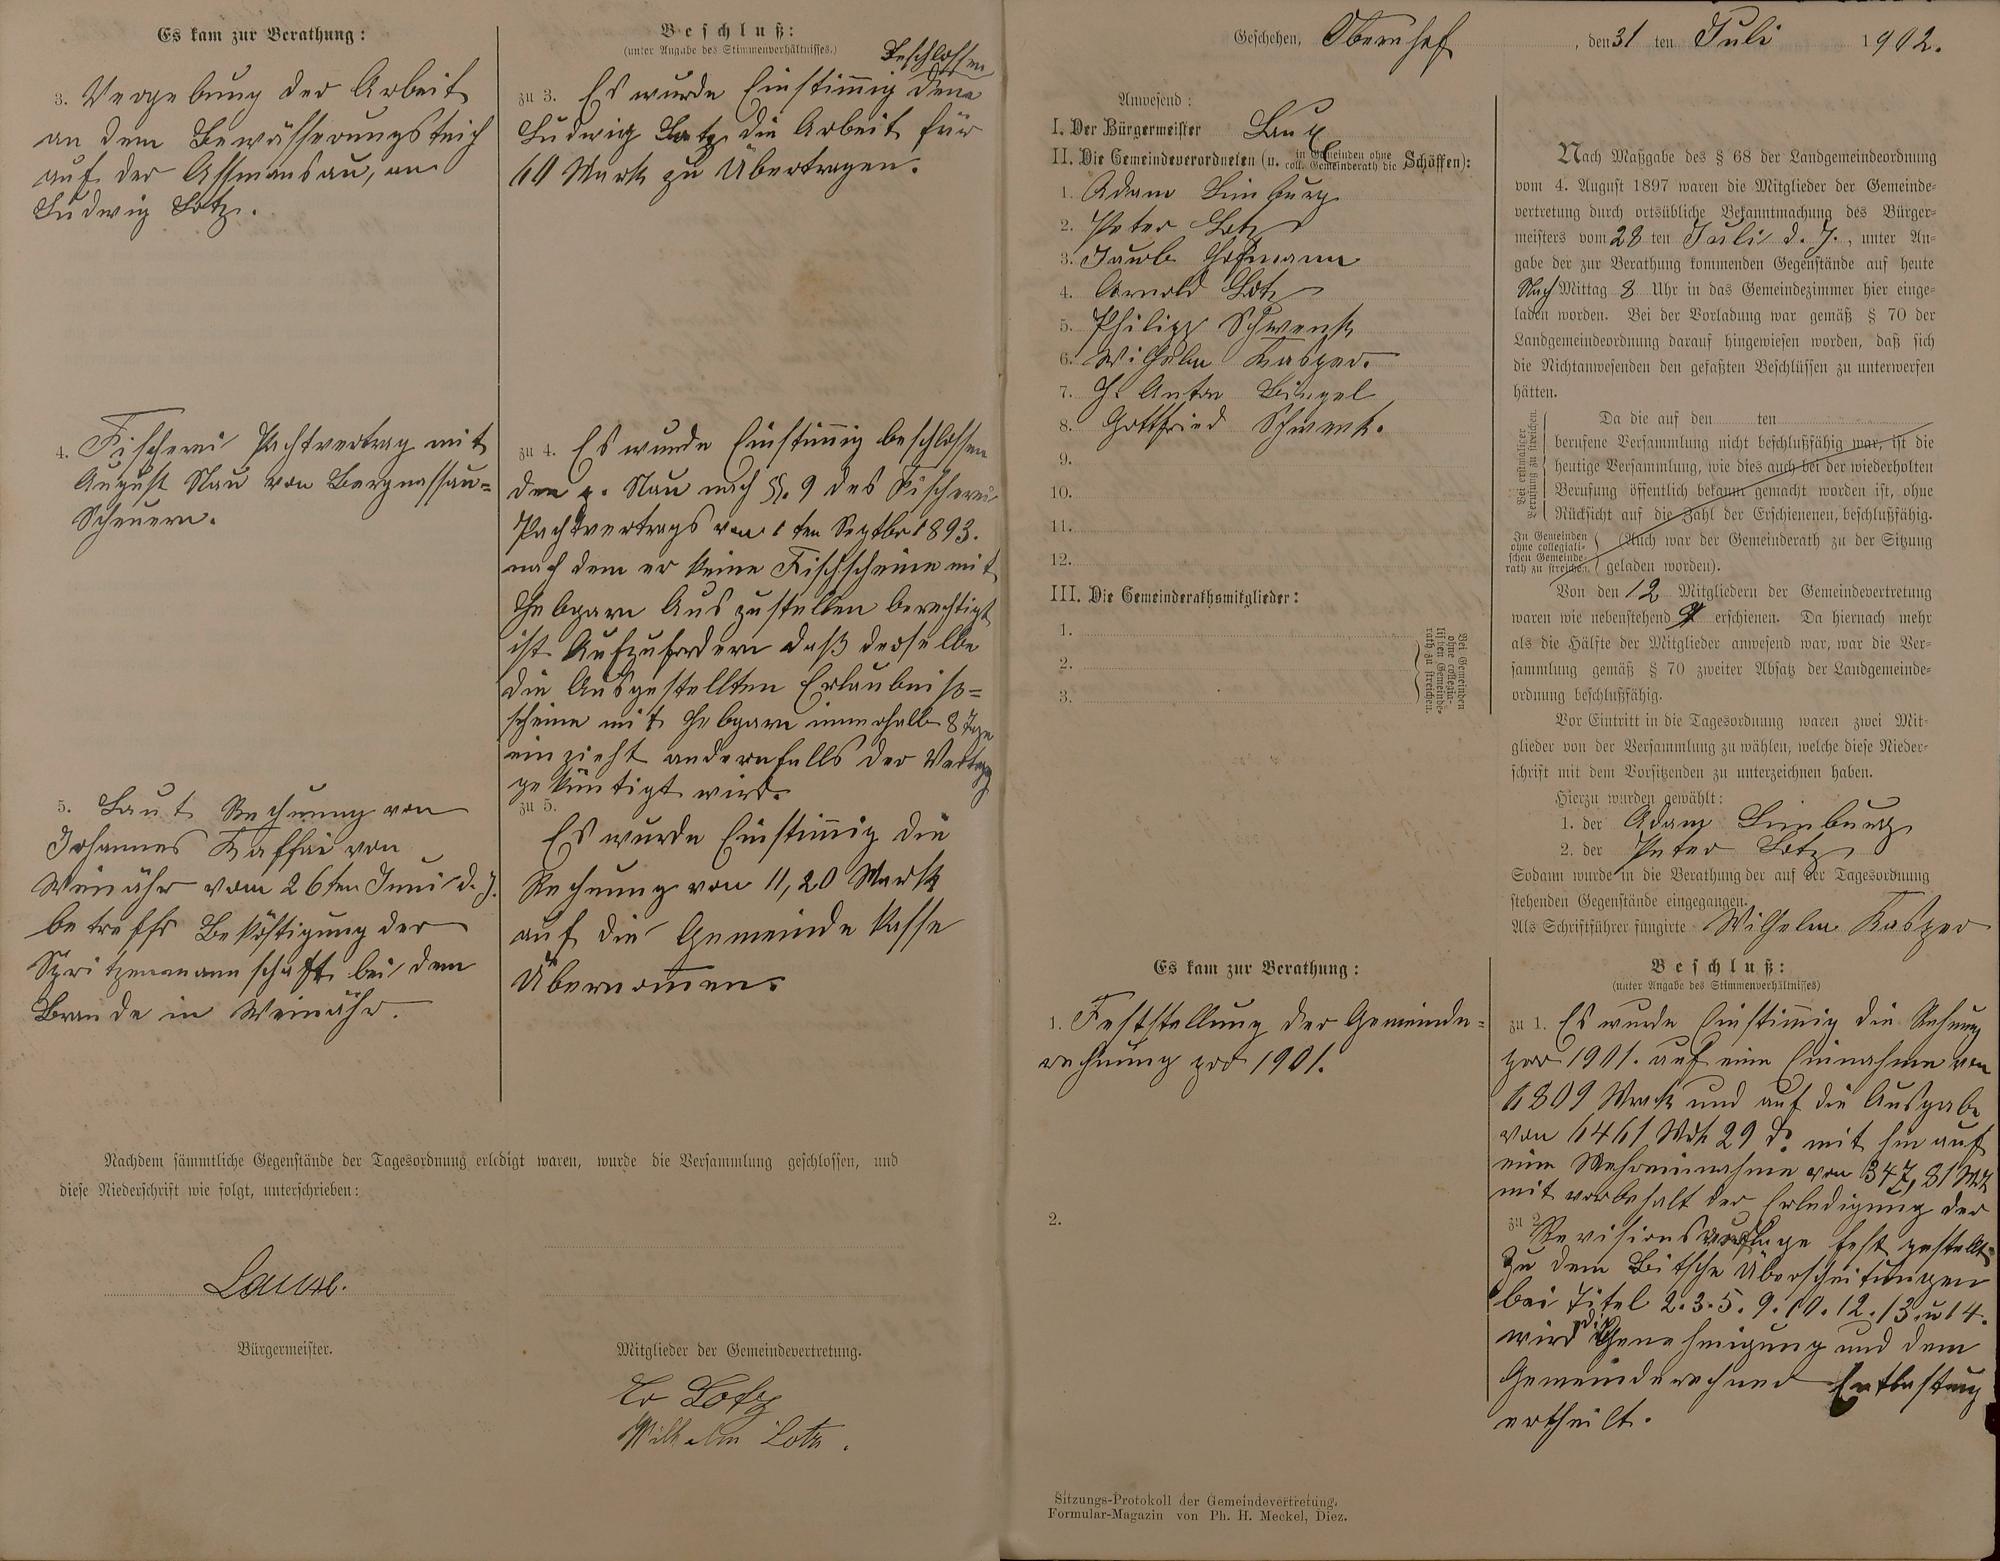 Es kam zur Berathung:
3. Vergebung der Arbeit
an dem Bewässerungsteich
auf der Assmansau, an
Ludwig Lotz.
4. Fischerei Pachtvertrag mit
August Nau von Bergnassau-
Scheuern.
5. Laut Rechnung von
Johannes Kaffai von
Weinähr vom 26ten Juni d. J.
betreffs Beköstigung der
Spritzenmannschaft bei dem
Brande in Weinähr.
Beschluß:
(unter Angabe des Stimmenverhältnisses.)
beschlossen
zu 3. Es wurde Einstimmig dem
Ludwig Lotz die Arbeit für
60 Mark zu Übertragen.
zu 4. Es wurde Einstimmig beschlossen
den p. Nau nach §. 9 des Fischerei
Pachtvertrags vom 1 ten Septbr 1893.
nach dem er keine Fischscheine mit
Hebgarn Auszustellen berechtigt
ist Aufzufordern daß derselbe
die Ausgestellten Erlaubniß-
scheine mit Hebgarn innerhalb 8 Tage
einzieht andernfalls der Vertrag
gekündigt wird.
zu 5.
Es wurde Einstimmig die
Rechnung von 11,20 Mark
auf die Gemeinde Kasse
Übernommen.
Nachdem sämmtliche Gegenstände der Tagesordnung erledigt waren, wurde die Versammlung geschlossen, und
diese Niederschrift wie folgt, unterschrieben:
Laux.
Bürgermeister.
Mitglieder der Gemeindevertretung.
Lotz
Wilhelm Lotz.
Geschehen, Obernhof, den 31 ten Juli 1902.
Anwesend:
I. Der Bürgermeister Laux
II. Die Gemeindeverordneten (u. in Gemeinden ohne coll. Gemeinderath die Schöffen):
1. Adam Limburg
2. Peter Lotz
3. Jacob Hofmann
4. Arnold Lotz
5. Philipp Schwenk
6. Wilhelm Kasper.
7. H. Anton Bingel
8. Gottfried Schwenk.
9.
10.
11.
12.
III. Die Gemeinderathsmitglieder:
1.
2.
3.
Bei Gemeinden
ohne collegia-
lischen Gemeinde-
rath zu streichen.
Nach Maßgabe des § 68 der Landgemeindeordnung
vom 4. August 1897 waren die Mitglieder der Gemeinde-
vertretung durch ortsübliche Bekanntmachung des Bürger-
meisters vom 28 ten Juli d. J., unter An-
gabe der zur Berathung kommenden Gegenstände auf heute
Nach Mittag 8 Uhr in das Gemeindezimmer hier einge-
laden worden. Bei der Vorladung war gemäß § 70 der
Landgemeindeordnung darauf hingewiesen worden, daß sich
die Nichtanwesenden den gefaßten Beschlüssen zu unterwerfen
hätten.
Bei erstmaliger
Berufung zu streichen.
Da die auf den ten
berufene Versammlung nicht beschlußfähig war, ist die
heutige Versammlung, wie dies auch bei der wiederholten
Berufung öffentlich bekannt gemacht worden ist, ohne
Rücksicht auf die Zahl der Erschienenen, beschlußfähig.
In Gemeinden
ohne collegiali-
schen Gemeinde-
rath zu streichen.
(Auch war der Gemeinderath zu der Sitzung
geladen worden).
Von den 12 Mitgliedern der Gemeindevertretung
waren wie nebenstehend 9 erschienen. Da hiernach mehr
als die Hälfte der Mitglieder anwesend war, war die Ver-
sammlung gemäß § 70 zweiter Absatz der Landgemeinde-
ordnung beschlußfähig.
Vor Eintritt in die Tagesordnung waren zwei Mit-
glieder von der Versammlung zu wählen, welche diese Nieder-
schrift mit dem Vorsitzenden zu unterzeichnen haben.
Hierzu wurden gewählt:
1. der Adam Limburg
2. der Peter Lotz
Sodann wurde in die Berathung der auf der Tagesordnung
stehenden Gegenstände eingegangen.
Als Schriftführer fungirte Wilhelm Kasper
Es kam zur Berathung:
1. Feststellung der Gemeinde-
rechnung pro 1901.
2.
Beschluß:
(unter Angabe des Stimmenverhältnisses)
zu 1. Es wurde Einstimmig die Rechnung
pro 1901. auf eine Einnahme von
6809 Mark und auf die Ausgabe
von 6461 Mk 29 d. mit hin auf
eine Mehreinnahme von 347,81 Mk
mit vorbehalt der Erledigung der
zu 2.
Revisions fest gestellt.
Zu dem Überschreitungen
bei Titel 2. 3. 5. 9. 10. 12. 13. u 14.
wird die Genehmigung und dem
Gemeinderechner Entlastung
ertheilt.
Sitzungs-Protokoll der Gemeindevertretung.
Formular-Magazin von Ph. H. Meckel, Diez.